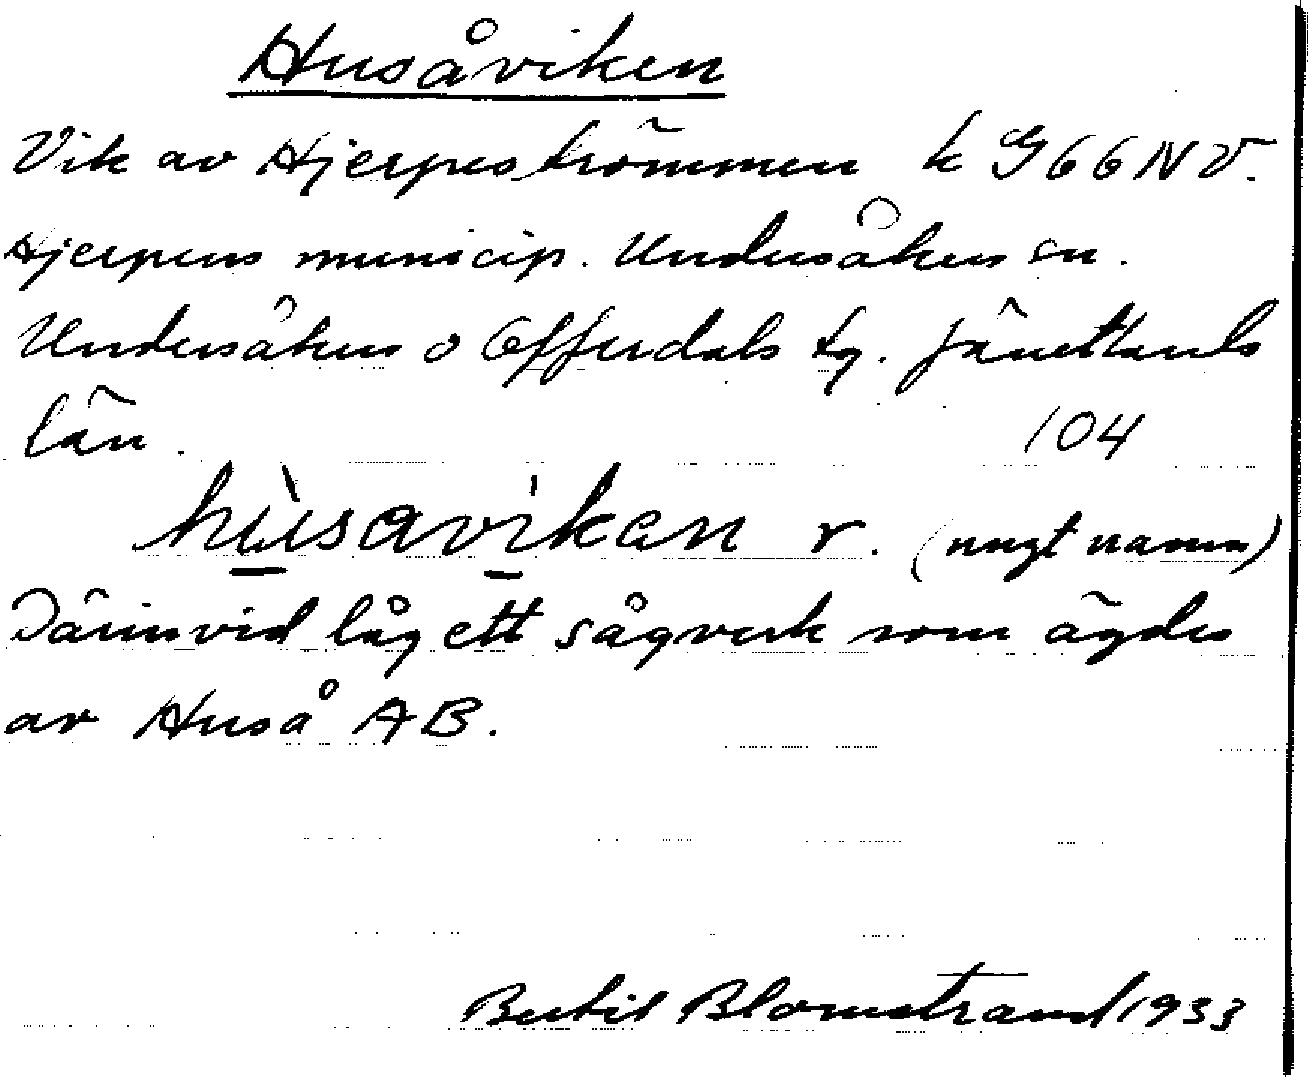 Husåviken
Vik av Hjerpeströmmen k G66NV.
Hjerpens municip. Undersåkers sn.
Undersåkers o Offerdals tg. Jämtlands
län. 104
hùsavíken r. (nygt namn)
Därinvid låg ett sågverk som ägdes
av Huså AB.
Bertil Blomstrand 1933